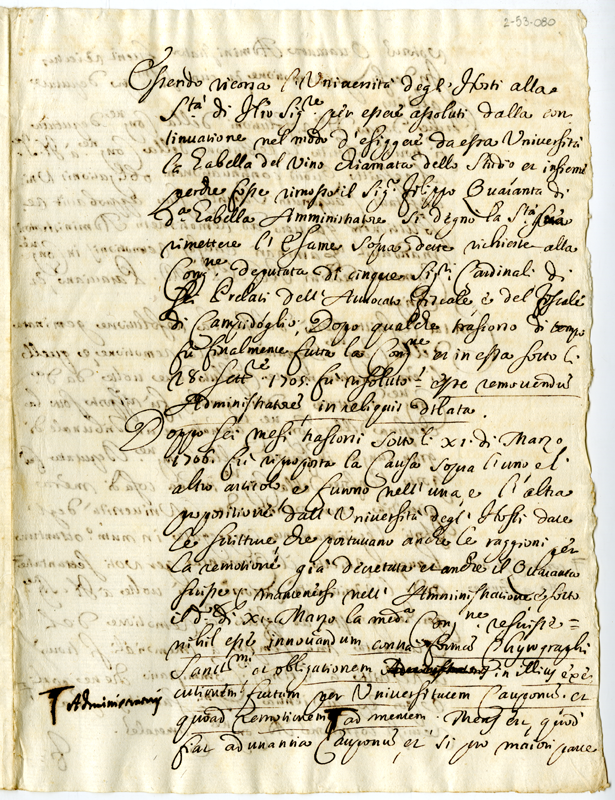 2-53-080
Essendo ricorsa l'Università degl'Hosti alla
S.tà di N.ro Sig.re per essere assoluti dalla con
tinuatione nel modo d'esiggere da essa Università
la Gabella del Vino chiamata dello Studio et insieme
perche fosse rimosso il Sig.r Filippo Quaranta di
d.a Gabella Amministratore si degnò la S.tà Sua
rimettere l'Esame sopra dette richieste alla
Cong.ne deputata di cinque SS.ri Cardinali di
Prelati dell'Avvocato Fiscale e del Fiscale
di Campidoglio, Dopo qualche trascorso di tempo
fù finalmente fatta la Cong.ne et in essa sotto li
28 Sett.re 1705. fù risoluto = esse removendus
Administrator in reliquis dilata.
Doppo sei mesi trascorsi sotto li XI. di Marzo
1706. fù riproposta la Causa sopra l'uno e l'
altro articolo e furono nell'una e l'altra
propositione dall'Università degl'Hosti date
le scritture che portavano anche le raggioni per
la remotione già decretata et anche il Quaranta
scrisse p mantenersi nell'Amministratione e sotto
il d.o dì XI. Marzo la med.a Cong.ne rescrisse =
nihil esse innovandum contra formam Chyrographi
Sanct.mi et obligationem in illius exe
cutionem factam per Universitatem Cauponum et
quoad remotionem ad mentem. Mens est, quod
fiat adunantia Cauponum et si pro maiori parte
Administratoris